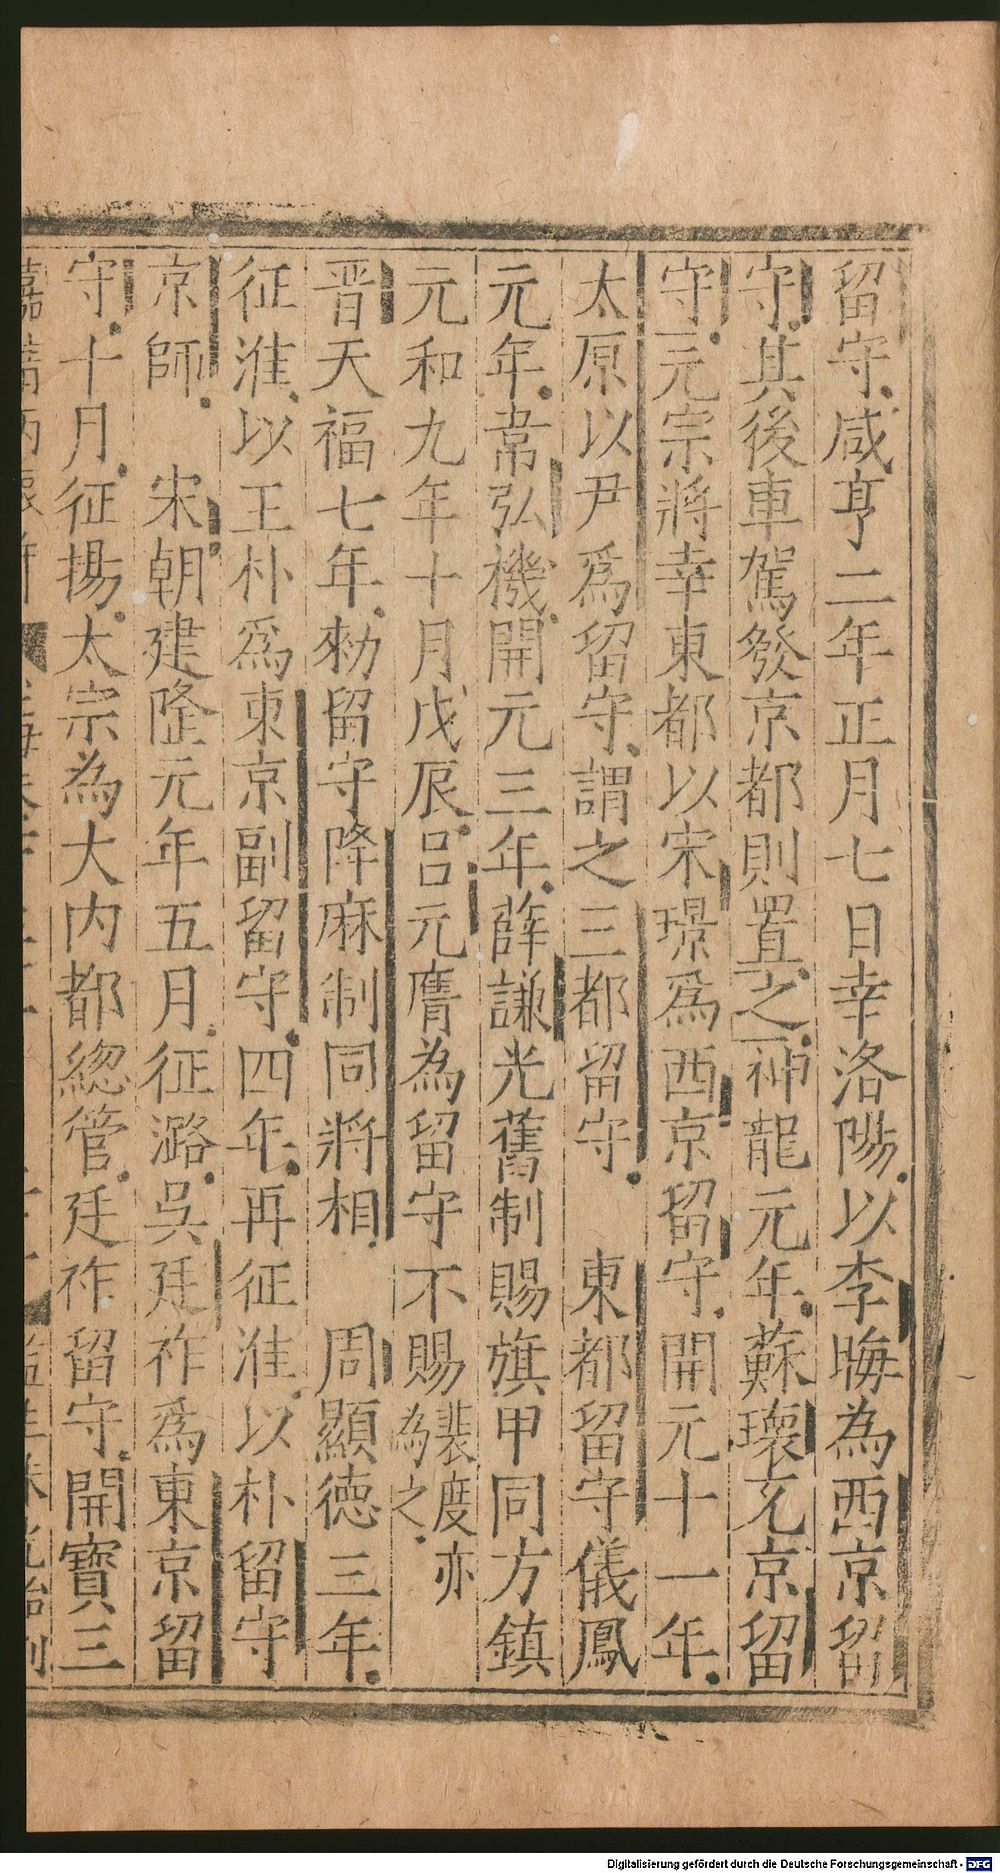 留守咸亨二年正月七日幸洛陽以李晦為西京留
守其後車駕發京都則置之神龍元年蘇瓌充京留
守元宗將幸東都以宋璟爲西京留守開元十一年
太原以尹爲留守謂之三都留守　東都留守儀鳳
元年韋弘機開元三年薛謙光舊制賜旗甲同方鎮
元和九年十月戊辰呂元膺為留守不賜裴度亦為之
晋天福七年勑留守降麻制同將相　周顯德三年
征淮以王朴爲東京副留守四年再征淮以朴留守
京師　宋朝建隆元年五月征潞吳廷祚爲東京留
守十月征揚太宗為大内都總管廷祚留守開寶三
Digitalisierung gefördert durch die Deutsche Forschungsgemeinschaft - DFG